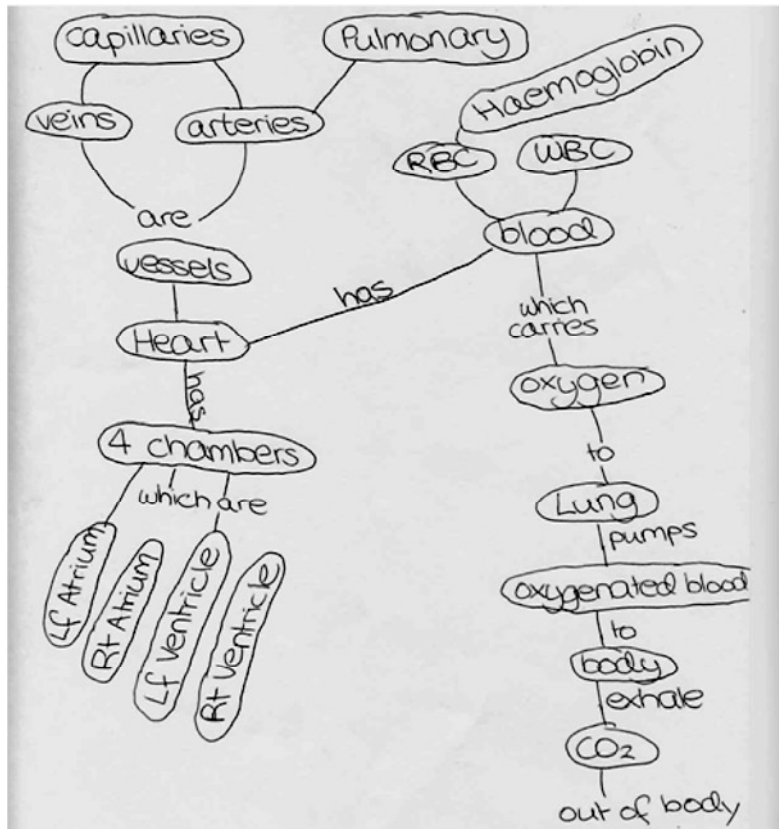 capillaries
Pulmonary
Haemoglobin
veins
arteries
RBC
WBC
are
blood
vessels
has
which
carries
Heart
has
oxygen
4 chambers
to
which are
Lung
pumps
Lf Atrium
Rt Atrium
Lf Ventricle
Rt Ventricle
oxygenated blood
to
body
exhale
CO2
out of body